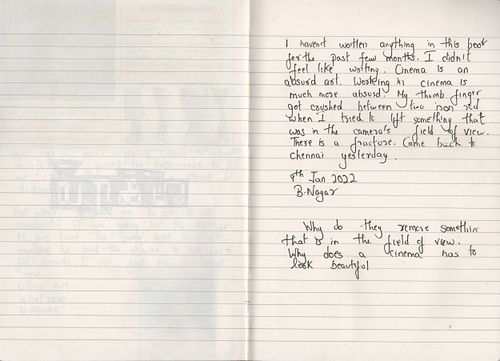 I havent written anything in this book
for the past few months. I didn't
feel like writing. Cinema is an
absurd art. Working in cinema is
much more absurd. My thumb finger
got crushed between two iron rod
when I tried to lift something that
was in the camera's field of view.
There is a fracture. Came back to
chennai yesterday.
9th Jan 2022
B-Nagar
Why do they remove somethin
that is in the field of view.
Why does a cinema has to
look beautiful